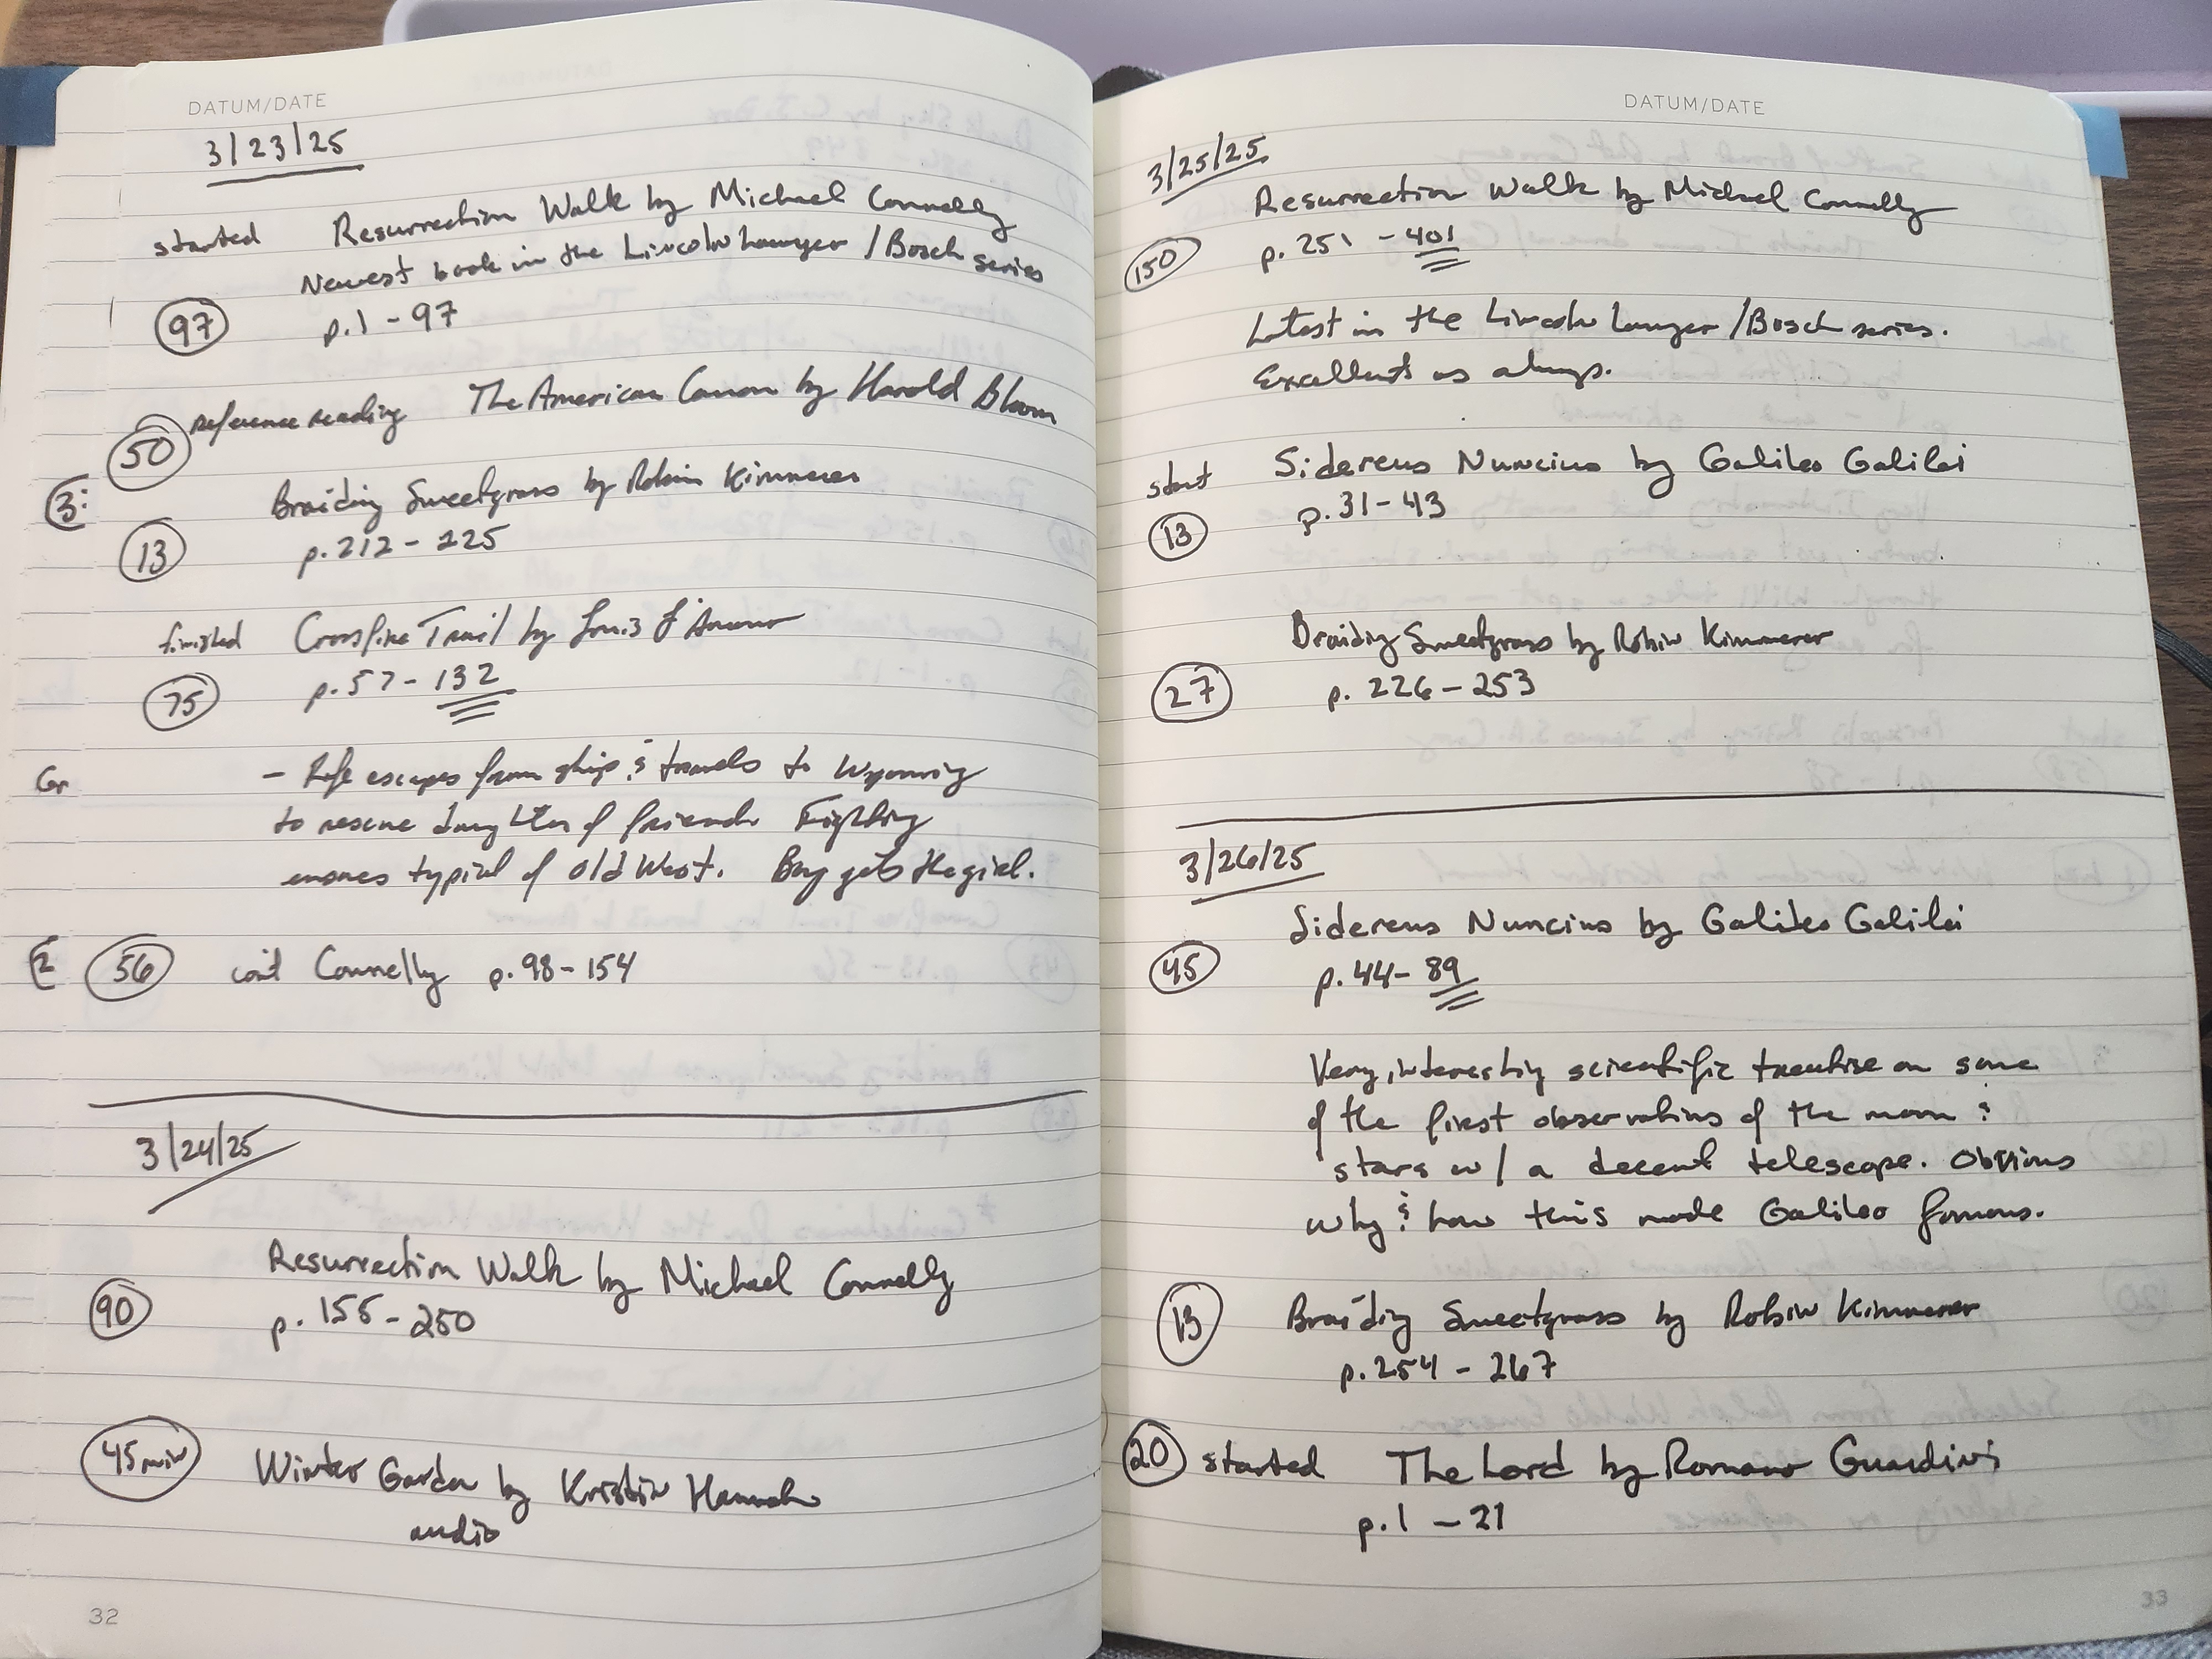 DATUM/DATE
3/23/25
started Resurrection Walk by Michael Connelly
Newest book in the Lincoln Lawyer / Bosch series
97 p. 1 - 97
50 reference reading The American Canon by Harold Bloom
3:
Braiding Sweetgrass by Robin Kimmerer
13 p. 212 - 225
finished Crossfire Trail by Louis L'Amour
75 p. 57 - 132
Gr
- Rafe escapes from ship & travels to Wyoming
to rescue daughter of friend. Fighting
ensues typical of Old West. Boy gets the girl.
2
56 con't Connelly p. 98 - 154
3/24/25
Resurrection Walk by Michael Connelly
90 p. 155 - 250
45 min Winter Garden by Kristin Hannah
audio
32
DATUM/DATE
3/25/25
Resurrection Walk by Michael Connelly
150 p. 251 - 401
Latest in the Lincoln Lawyer / Bosch series.
Excellent as always.
start Sidereus Nuncius by Galileo Galilei
13 p. 31 - 43
Braiding Sweetgrass by Robin Kimmerer
27 p. 226 - 253
3/26/25
Sidereus Nuncius by Galileo Galilei
45 p. 44 - 89
Very interesting scientific treatise on some
of the first observations of the moon &
stars w/ a decent telescope. Obvious
why & how this made Galileo famous.
13 Braiding Sweetgrass by Robin Kimmerer
p. 254 - 267
20 started The Lord by Romano Guardini
p. 1 - 21
33